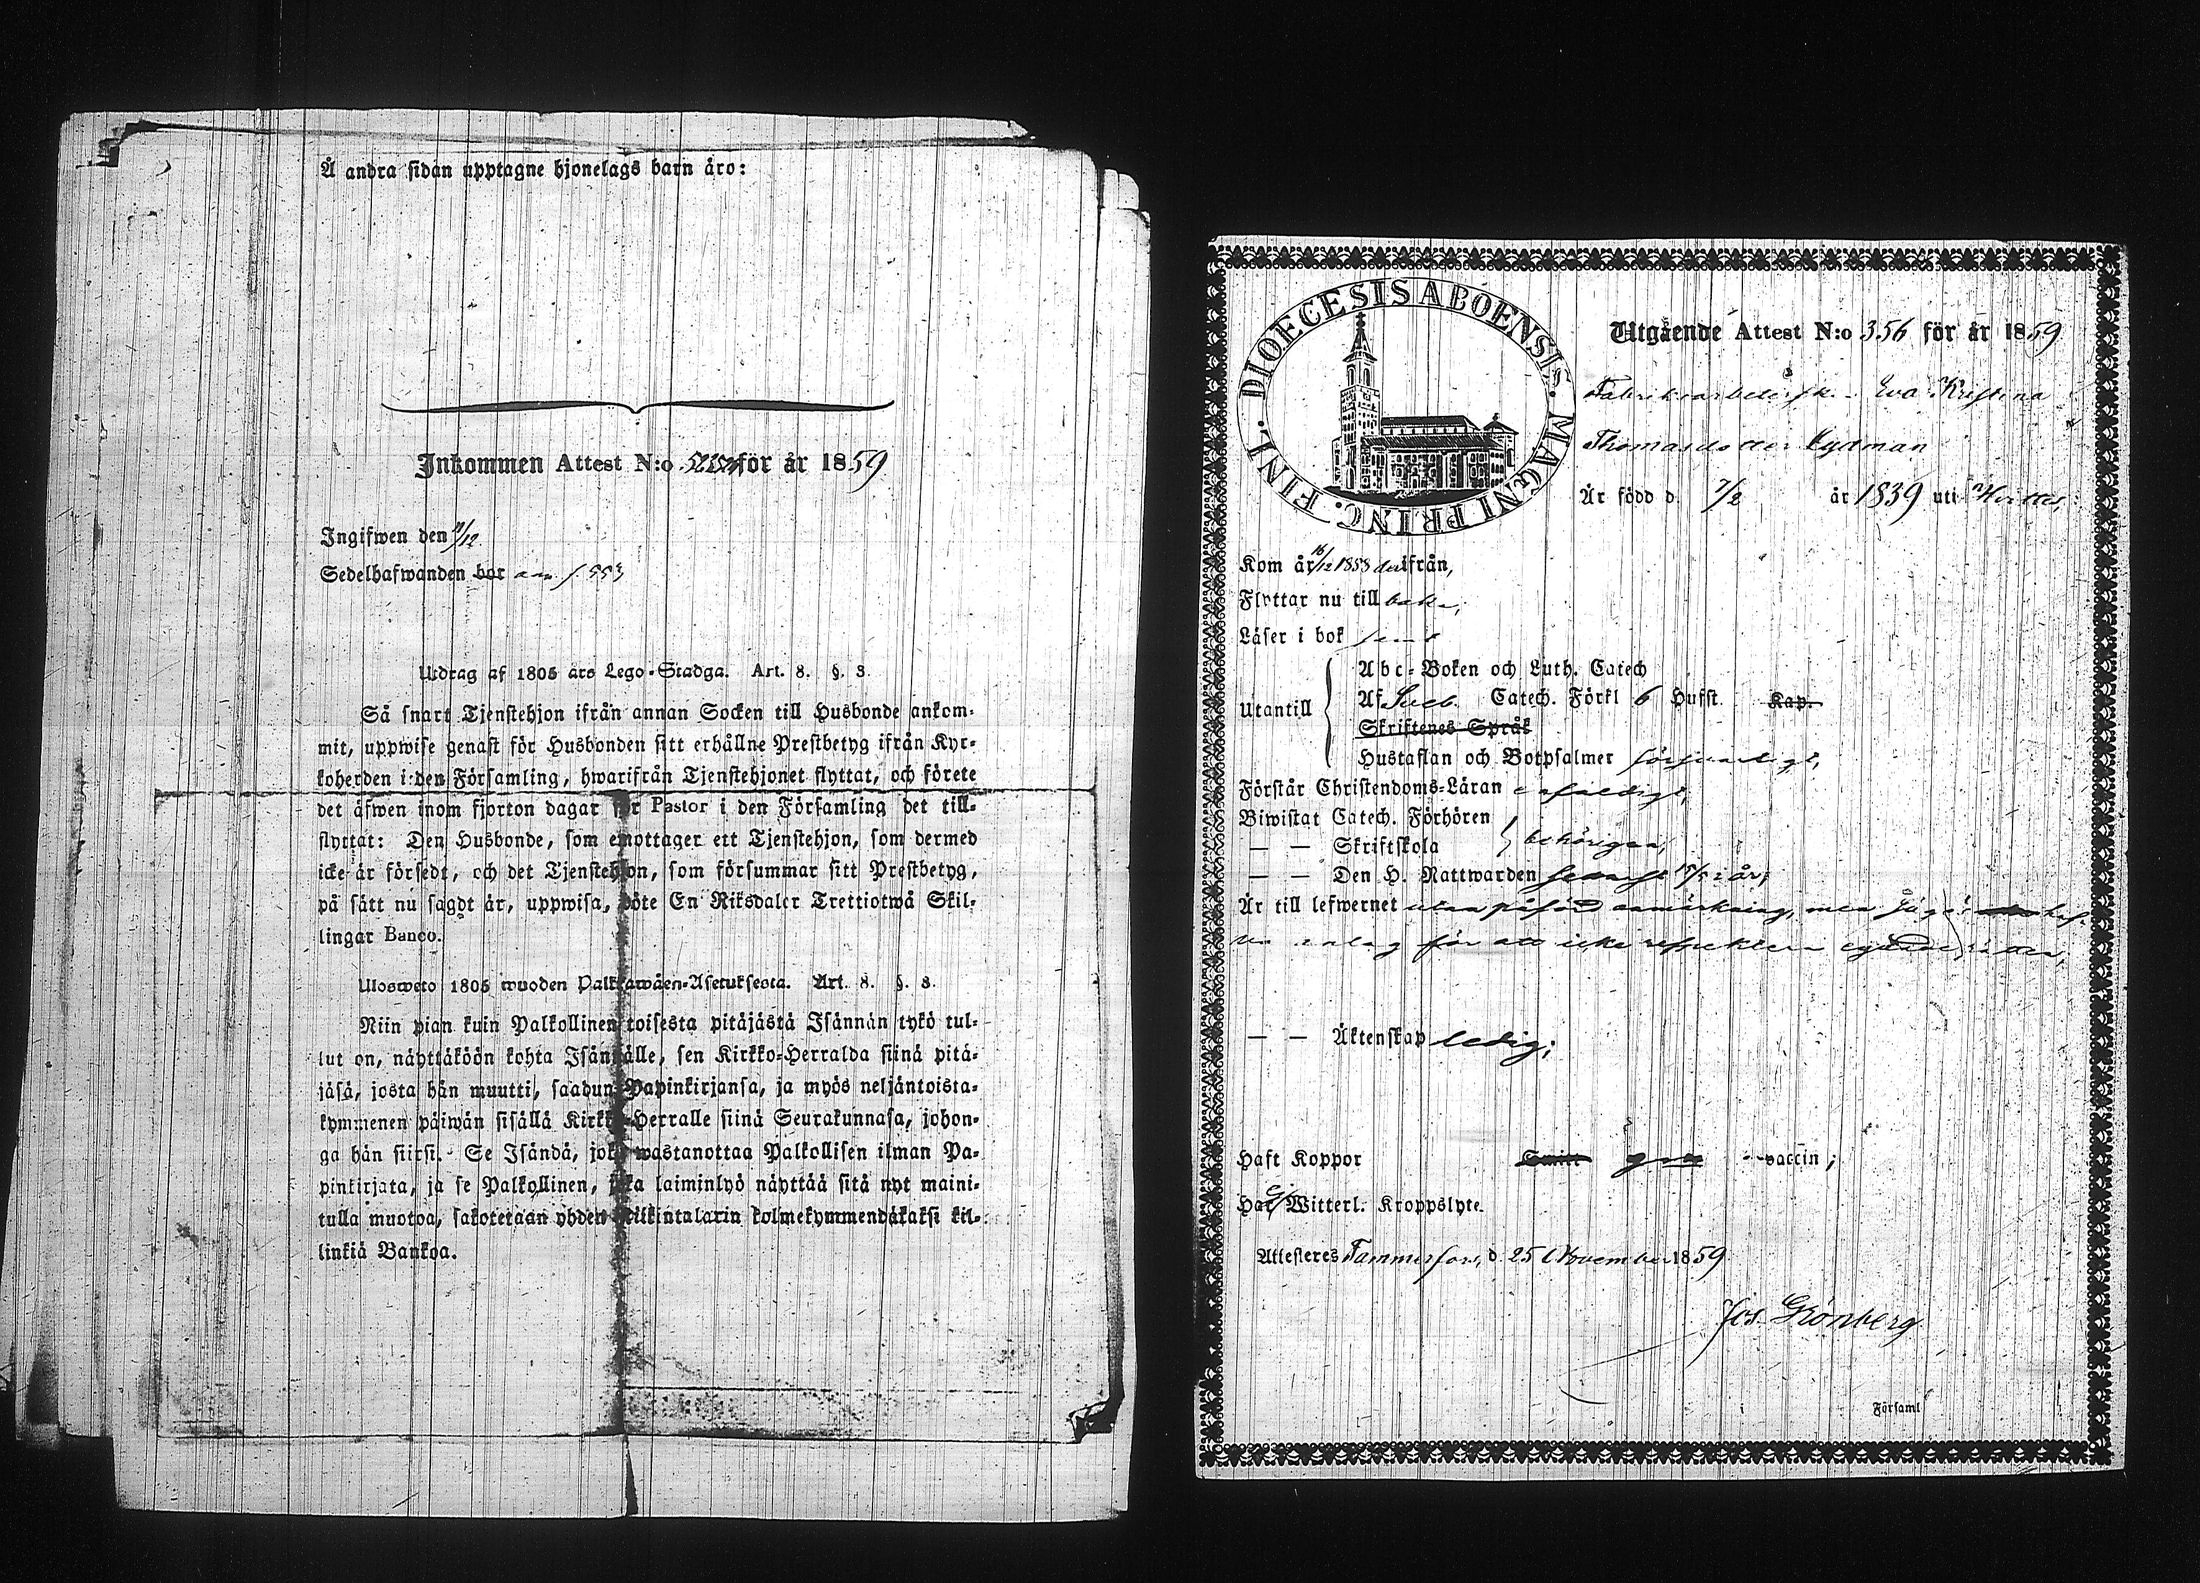 Å andra sidan upptagne hjonelags barn äro:
Inkommen Attest N:o för år 1859
Ingifwen den /12
Sedelhafwanden bor ann. s. 553
Utdrag af 1805 års Lego-Stadga. Art. 8. §. 3.
Så snart Tjenstehjon ifrån annan Socken till Husbonde ankom-
mit, uppwise genast för Husbonden sitt erhållne Prestbetyg ifrån Kyr-
koherden i den Församling, hwarifrån Tjenstehjonet flyttat, och förete
det äfwen inom fjorton dagar för Pastor i den Församling det till-
flyttat: Den Husbonde, som emottager ett Tjenstehjon, som dermed
icke är försedt, och det Tjenstehjon, som försummar sitt Prestbetyg,
på sätt nu sagdt är, uppwisa, böte En Riksdaler Trettiotwå Skil-
lingar Banco.
Ulosweto 1805 wuoden Palkkawäen-Asetuksesta. Art. 8. §. 3.
Niin pian kuin Palkollinen toisesta pitäjästä Isännän tykö tul-
lut on, näyttäköön kohta Isännälle, sen Kirkko-Herralda siinä pitä-
jäsä, josta hän muutti, saadun Papinkirjansa, ja myös neljäntoista-
kymmenen päiwän sisällä Kirkko-Herralle siinä Seurakunnasa, johon-
ga hän siirsi. Se Isändä, joka wastanottaa Palkollisen ilman Pa-
pinkirjata, ja se Palkollinen, joka laiminlyö näyttää sitä nyt maini-
tulla muotoa, sakotetaan yhden Riikintalarin kolmekymmendäkaksi kil-
linkiä Bankoa.
DIOECESIS ABOENSIS. MAGNI PRINC. FINL.
Utgående Attest N:o 356 för år 1859
Fabriksarbetersk. Eva Kristina
Thomasdotter Lydman
Är född d. 7/2 år 1839 uti Hvittis,
Kom år 16/12 1858 derifrån,
Flyttar nu till baka,
Läser i bok
Utantill
Abc-Boken och Luth. Catech
Af Sveb. Catech. Förkl 6 Hufst. Kap.
Skriftenes Språk
Hustaflan och Botpsalmer försvarligt,
Förstår Christendoms-Läran enfaldigt,
Biwistat Catech. Förhören
— — Skriftskola behörigen,
— — Den H. Nattwarden senast
Är till lefwernet utan påförd anmärkning, men
för att icke respektera
— — Äktenskap ledig;
Haft Koppor vaccin;
Har ej Witterl. Kroppslyte.
Attesteres Tammerfors, d. 25 November 1859
Jos. Grönberg
Församl